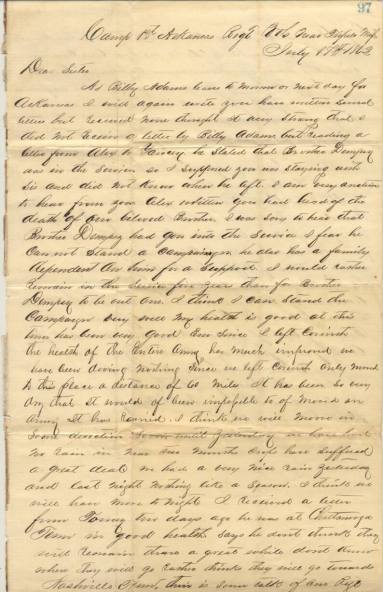 97
Camp 1st Arkansas Regt Near Miss
July 17th 1862
Dear Sister
As Billy Adams leave to morrow or next day for
Arkansas I will again write you have written several
letters but received none thought it very strange that I
did not receive a letter by Billy Adams but reading a
letter from Alex to he stated that Brother Dempsy
was in the Service so I supposed you was staying with
Sis and did not know when he left. I am very anxious
to hear from you Alex written you had heard of the
death of our beloved Brother. I was sorry to hear that
Brother Dempsy had gon into the Service I fear he
cannot stand a Campaign he also has a family
dependent on him for a support. I would rather
remain in the Service five years than for Brother
Dempsy to be out one. I think I can stand the
Campaign very well my health is good at this
time has been very good ever since I left Corinth
the health of the entire Army has much improved we
have been doing nothing since we left Corinth only moved
to this place a distance of 60 miles it has been so very
dry that it would of been impossible to of moved an
army it has rained. I think we will move in
some direction soon until yesterday we have had
no rain in near one month crops have suffered
a great deal we had a very nice rain yesterday
and last night nothing like a season. I think we
will have more to night I received a letter
from Tommy two days ago he was at Chattanooga
Tenn in good health says he dont think they
will remain there a great while dont know
where they will go rather thinks they will go towards
Nashville Tenn, there is some talk of our Regt